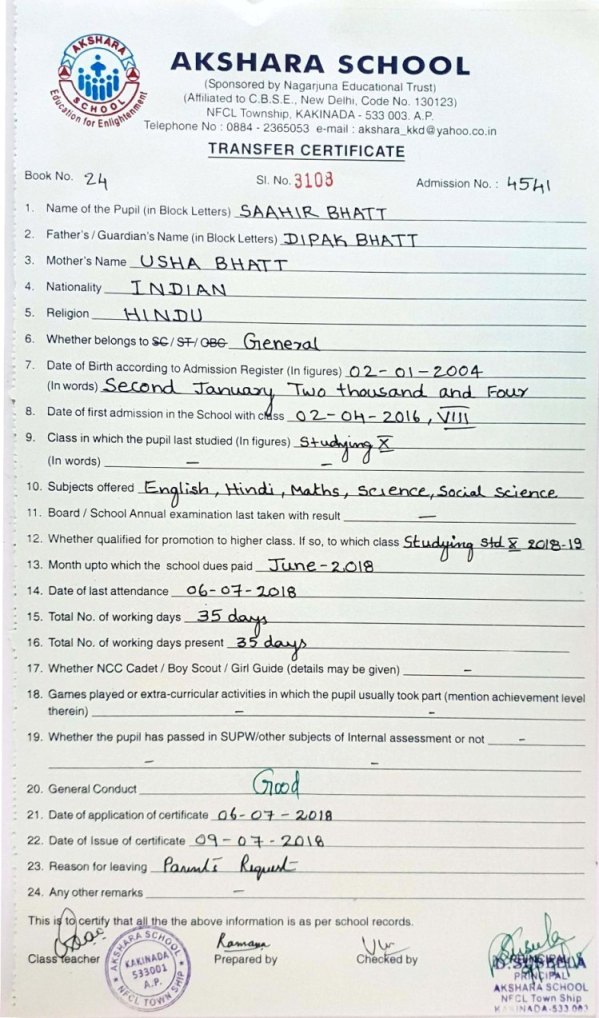 AKSHARA SCHOOL
Education for Enlightenment
AKSHARA SCHOOL
(Sponsored by Nagarjuna Educational Trust)
(Affiliated to C.B.S.E., New Delhi, Code No. 130123)
NFCL Township, KAKINADA - 533 003. A.P.
Telephone No : 0884 - 2365053 e-mail : akshara_kkd@yahoo.co.in
TRANSFER CERTIFICATE
Book No. 24 Sl. No. 3108 Admission No. : 4541
1. Name of the Pupil (in Block Letters) SAAHIR BHATT
2. Father's / Guardian's Name (in Block Letters) DIPAK BHATT
3. Mother's Name USHA BHATT
4. Nationality INDIAN
5. Religion HINDU
6. Whether belongs to SC / ST / OBC General
7. Date of Birth according to Admission Register (In figures) 02-01-2004
(In words) Second January Two thousand and Four
8. Date of first admission in the School with class 02-04-2016, VIII
9. Class in which the pupil last studied (In figures) Studying X
(In words) – –
10. Subjects offered English, Hindi, Maths, Science, Social Science
11. Board / School Annual examination last taken with result –
12. Whether qualified for promotion to higher class. If so, to which class Studying Std X 2018-19
13. Month upto which the school dues paid June-2018
14. Date of last attendance 06-07-2018
15. Total No. of working days 35 days
16. Total No. of working days present 35 days
17. Whether NCC Cadet / Boy Scout / Girl Guide (details may be given) –
18. Games played or extra-curricular activities in which the pupil usually took part (mention achievement level
therein) – –
19. Whether the pupil has passed in SUPW/other subjects of Internal assessment or not –
– –
20. General Conduct Good
21. Date of application of certificate 06-07-2018
22. Date of Issue of certificate 09-07-2018
23. Reason for leaving Parent's Request
24. Any other remarks –
This is to certify that all the the above information is as per school records.
Ramana
Class Teacher Prepared by Checked by
AKSHARA SCHOOL
KAKINADA
533001
A.P.
NFCL TOWN SHIP
PRINCIPAL
PRINCIPAL
AKSHARA SCHOOL
NFCL Town Ship
KAKINADA-533 003